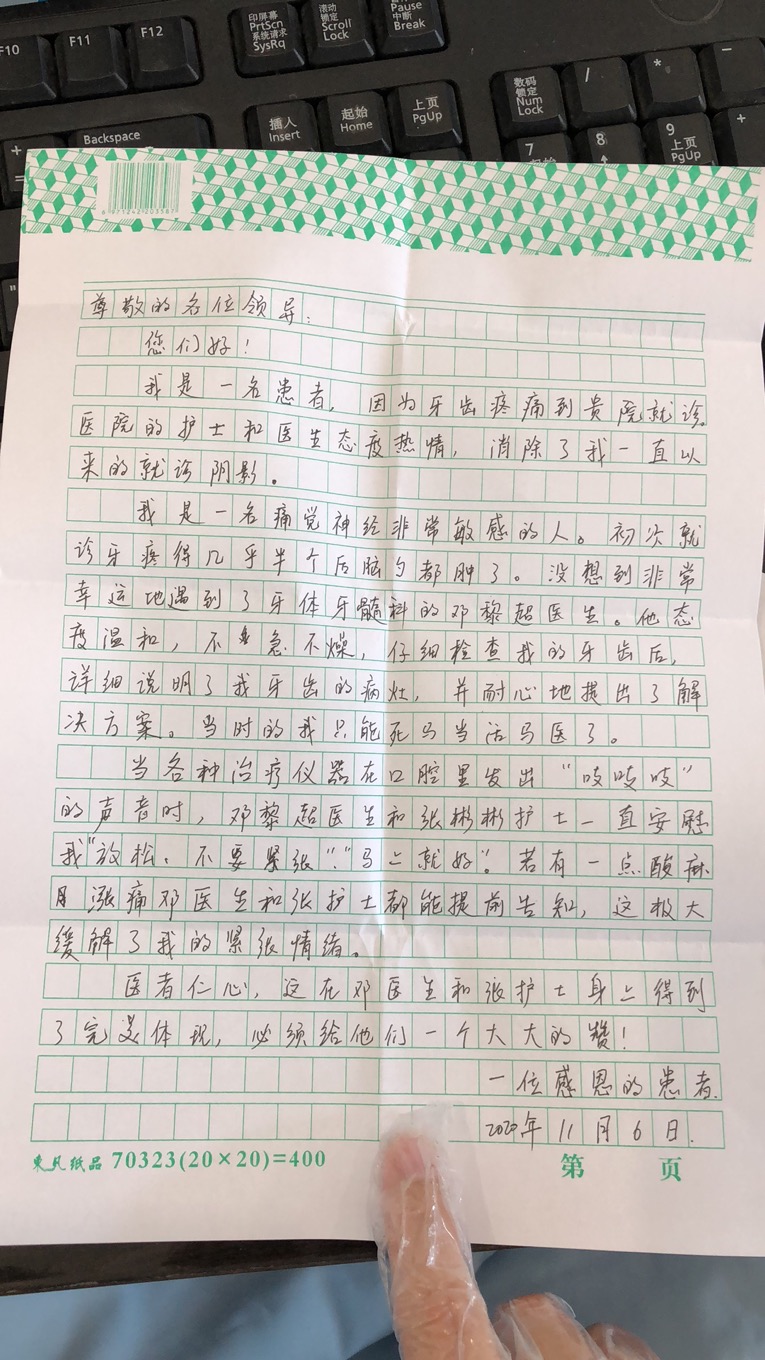 F10
F11
F12
印屏幕
PrtScn
系统请求
SysRq
滚动
锁定
Scroll
Lock
Pause
中断
Break
Backspace
插人
Insert
起始
Home
上页
PgUp
数码
锁定
Num
Lock
/
*
-
7
8
9
上页
PgUp
+
+
=
"
6 971242 203587
尊敬的各位领导：
您们好！
我是一名患者，因为牙齿疼痛到贵院就诊。
医院的护士和医生态度热情，消除了我一直以
来的就诊阴影。
我是一名痛觉神经非常敏感的人。初次就
诊牙疼得几乎半个后脑勺都肿了。没想到非常
幸运地遇到了牙体牙髓科的邓黎超医生。他态
度温和，不急不燥，仔细检查我的牙齿后，
详细说明了我牙齿的病灶，并耐心地提出了解
决方案。当时的我只能死马当活马医了。
当各种治疗仪器在口腔里发出“吱吱吱”
的声音时，邓黎超医生和张彬彬护士一直安慰
我“放松，不要紧张”“马上就好”。若有一点酸麻
涨痛邓医生和张护士都能提前告知，这极大
缓解了我的紧张情绪。
医者仁心，这在邓医生和张护士身上得到
了完美体现，必须给他们一个大大的赞！
一位感恩的患者.
2020年11月6日.
东风纸品 70323(20×20)=400
第 页